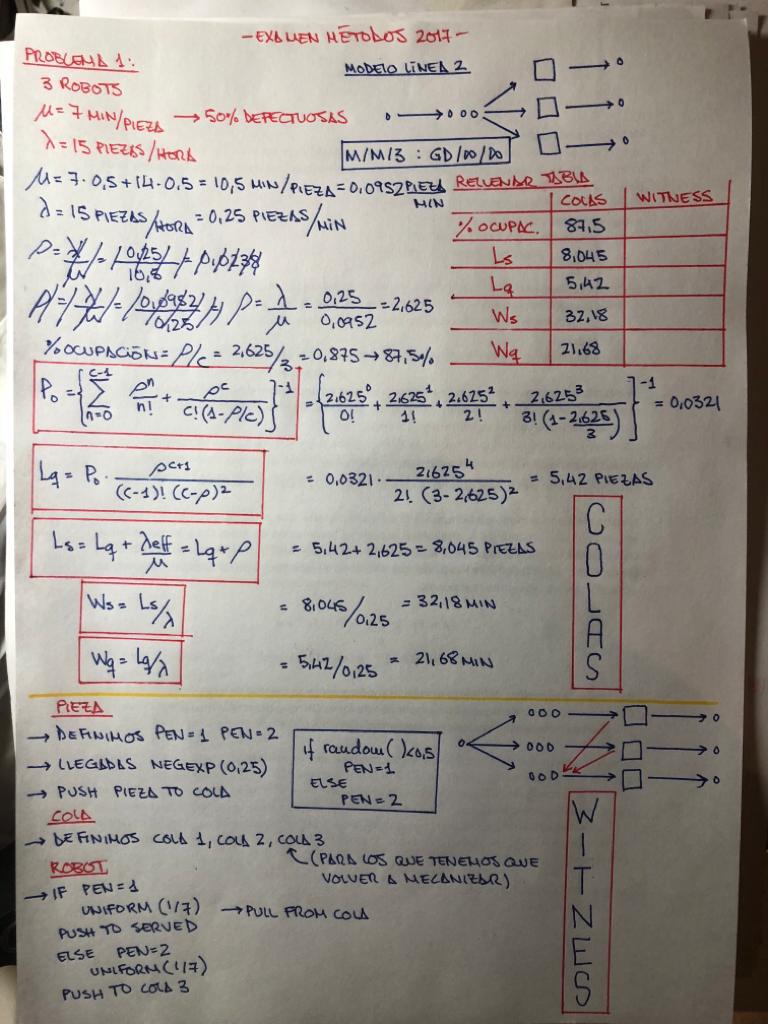 -EXAMEN MÉTODOS 2017-
PROBLEMA 1:
3 ROBOTS
μ = 7 MIN/PIEZA → 50% DEFECTUOSAS
λ = 15 PIEZAS/HORA
MODELO LÍNEA 2
M/M/3 : GD/∞/∞
μ = 7·0,5+14·0,5 = 10,5 MIN/PIEZA = 0,0952 PIEZA/MIN
λ = 15 PIEZAS/HORA = 0,25 PIEZAS/MIN
RELLENAR TABLA
COLAS WITNESS
% OCUPAC. 87,5
Ls 8,045
Lq 5,42
Ws 32,18
Wq 21,68
ρ = λ/μ = 0,25/0,0952 = 2,625
% OCUPACIÓN = ρ/c = 2,625/3 = 0,875 → 87,5%
P₀ = {∑_{n=0}^{c-1} ρⁿ/n! + ρᶜ/c!(1-ρ/c)}⁻¹ = {2,625⁰/0! + 2,625¹/1! + 2,625²/2! + 2,625³/3!(1-2,625/3)}⁻¹ = 0,0321
Lq = P₀ · ρᶜ⁺¹/(c-1)! (c-ρ)² = 0,0321 · 2,625⁴/2! (3-2,625)² = 5,42 PIEZAS
Ls = Lq + λeff/μ = Lq + ρ = 5,42 + 2,625 = 8,045 PIEZAS
Ws = Ls/λ = 8,045/0,25 = 32,18 MIN
Wq = Lq/λ = 5,42/0,25 = 21,68 MIN
COLAS
PIEZA
→ DEFINIMOS PEN=1 PEN=2
→ LLEGADAS NEGEXP (0,25)
→ PUSH PIEZA TO COLA
if random( )<0,5
PEN=1
ELSE
PEN=2
COLA
→ DEFINIMOS COLA 1, COLA 2, COLA 3
(PARA LOS QUE TENEMOS QUE
VOLVER A MECANIZAR)
ROBOT
→ IF PEN=1
UNIFORM (1/7) → PULL FROM COLA
PUSH TO SERVED
ELSE PEN=2
UNIFORM (1/7)
PUSH TO COLA 3
WITNES